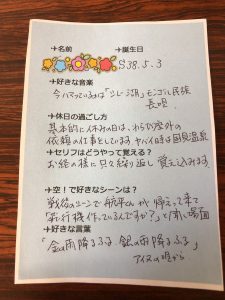 →名前 →誕生日
S38.5.3
→好きな音楽
今ハマっているのは「シレ湖」モンゴル民族
長唄
→休日の過ごし方
基本的に休みの日は、わらび座外の
依頼の仕事をしています。ヤバイ時は国見温泉
→セリフはどうやって覚える？
お経の様に只々繰り返し覚え込みます。
→空！で好きなシーンは？
戦後のシーンで航平くんが帰って来て
「飛行機作っているんですか？」と聞く場面
→好きな言葉
「金の雨降るふる 銀の雨降るふる」
アイヌの唄から